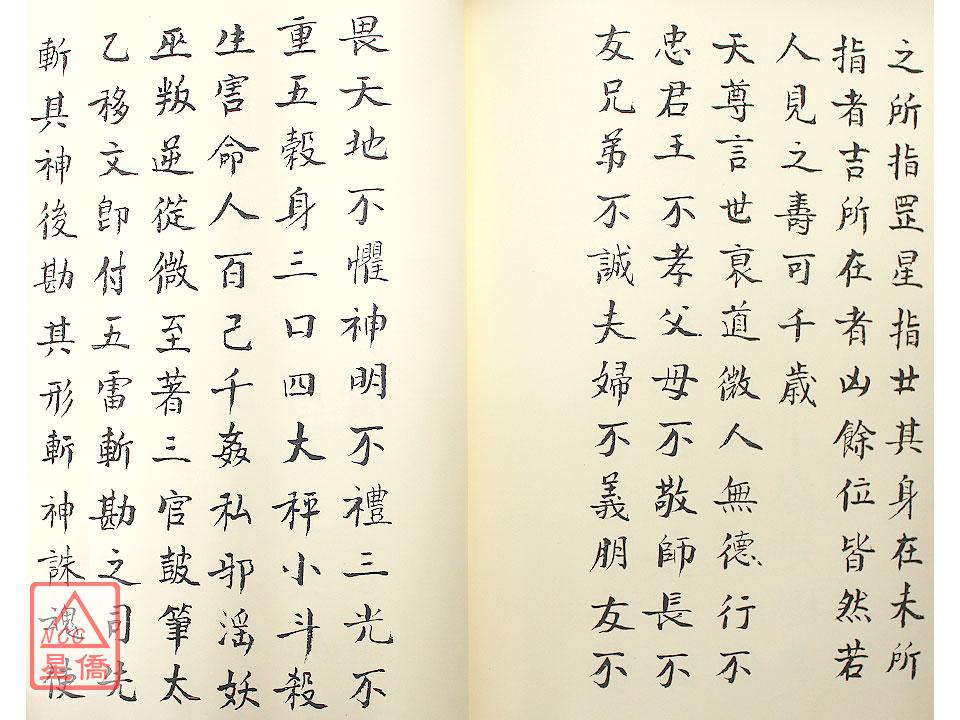 之所指罡星指廿其身在未所
指者吉所在者凶餘位皆然若
人見之壽可千歲
天尊言世衰道微人無德行不
忠君王不孝父母不敬師長不
友兄弟不誠夫婦不義朋友不
畏天地不懼神明不禮三光不
重五穀身三口四大秤小斗殺
生害命人百己千姦私邪淫妖
巫叛逆從微至著三官鼓筆太
乙移文即付五雷斬勘之司先
斬其神後勘其形斬神誅魂使
NCC
星僑